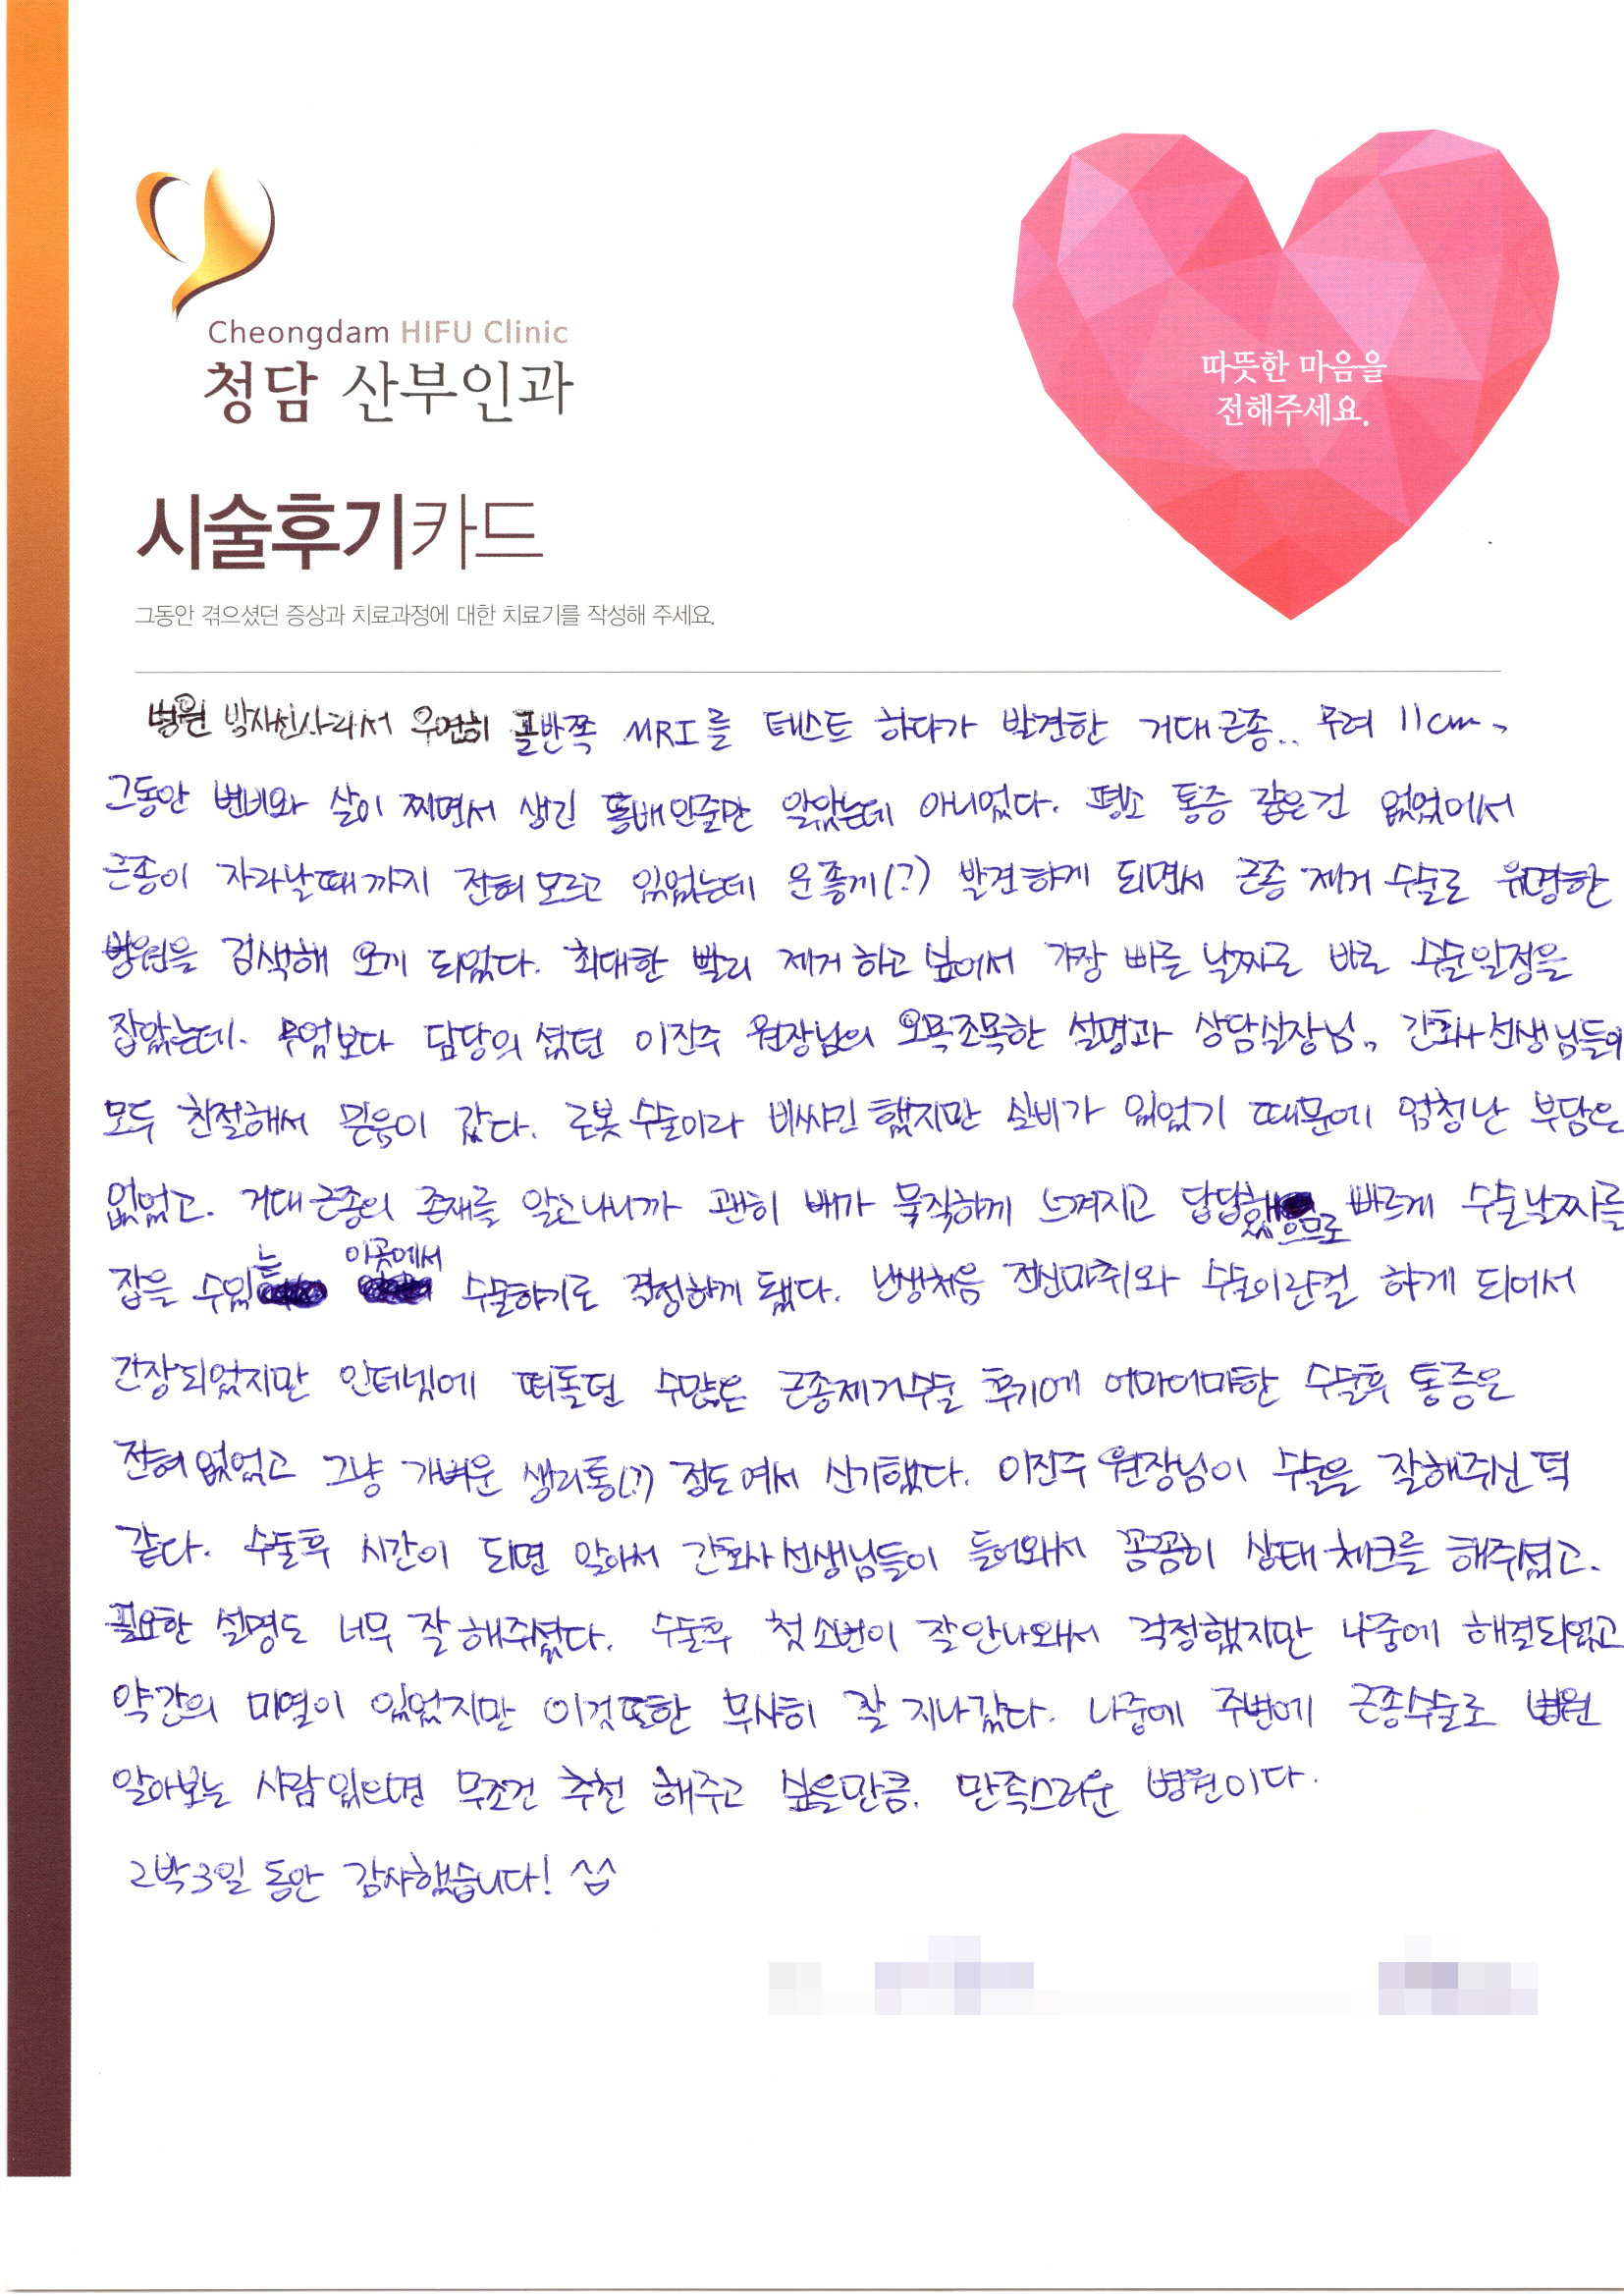 Cheongdam HIFU Clinic
청담 산부인과
따뜻한 마음을
전해주세요.
시술후기카드
그동안 겪으셨던 증상과 치료과정에 대한 치료기를 작성해 주세요.
병원 방사선사라서 우연히 골반쪽 MRI를 테스트 하다가 발견한 거대근종.. 무려 11cm~
그동안 변비와 살이 찌면서 생긴 똥배인줄만 알았는데 아니었다. 평소 통증 같은건 없었어서
근종이 자라날때까지 전혀 모르고 있었는데 운좋게(?) 발견하게 되면서 근종 제거 수술로 유명한
병원을 검색해 오게 되었다. 최대한 빨리 제거하고 싶어서 가장 빠른 날짜로 바로 수술일정을
잡았는데. 무엇보다 담당의셨던 이진주 원장님의 오목조목한 설명과 상담실장님, 간호사선생님들이
모두 친절해서 믿음이 갔다. 로봇수술이라 비싸긴 했지만 실비가 있었기 때문에 엄청난 부담은
없었고. 거대근종의 존재를 알고나니까 괜히 배가 묵직하게 느껴지고 답답해왔으므로 빠르게 수술날짜를
잡을 수있는 이곳에서 수술하기로 결정하게 됐다. 난생처음 전신마취와 수술이란걸 하게 되어서
긴장되었지만 인터넷에 떠돌던 수많은 근종제거수술 후기에 어마어마한 수술후 통증은
전혀없었고 그냥 가벼운 생리통(?) 정도여서 신기했다. 이진주 원장님이 수술을 잘해주신 덕
같다. 수술후 시간이 되면 알아서 간호사선생님들이 들어와서 꼼꼼히 상태체크를 해주셨고.
필요한 설명도 너무 잘해주셨다. 수술후 첫소변이 잘안나와서 걱정했지만 나중에 해결되었고
약간의 미열이 있었지만 이것또한 무사히 잘 지나갔다. 나중에 주변에 근종수술로 병원
알아보는 사람있으면 무조건 추천 해주고 싶을만큼. 만족스러운 병원이다.
2박3일 동안 감사했습니다! ^^